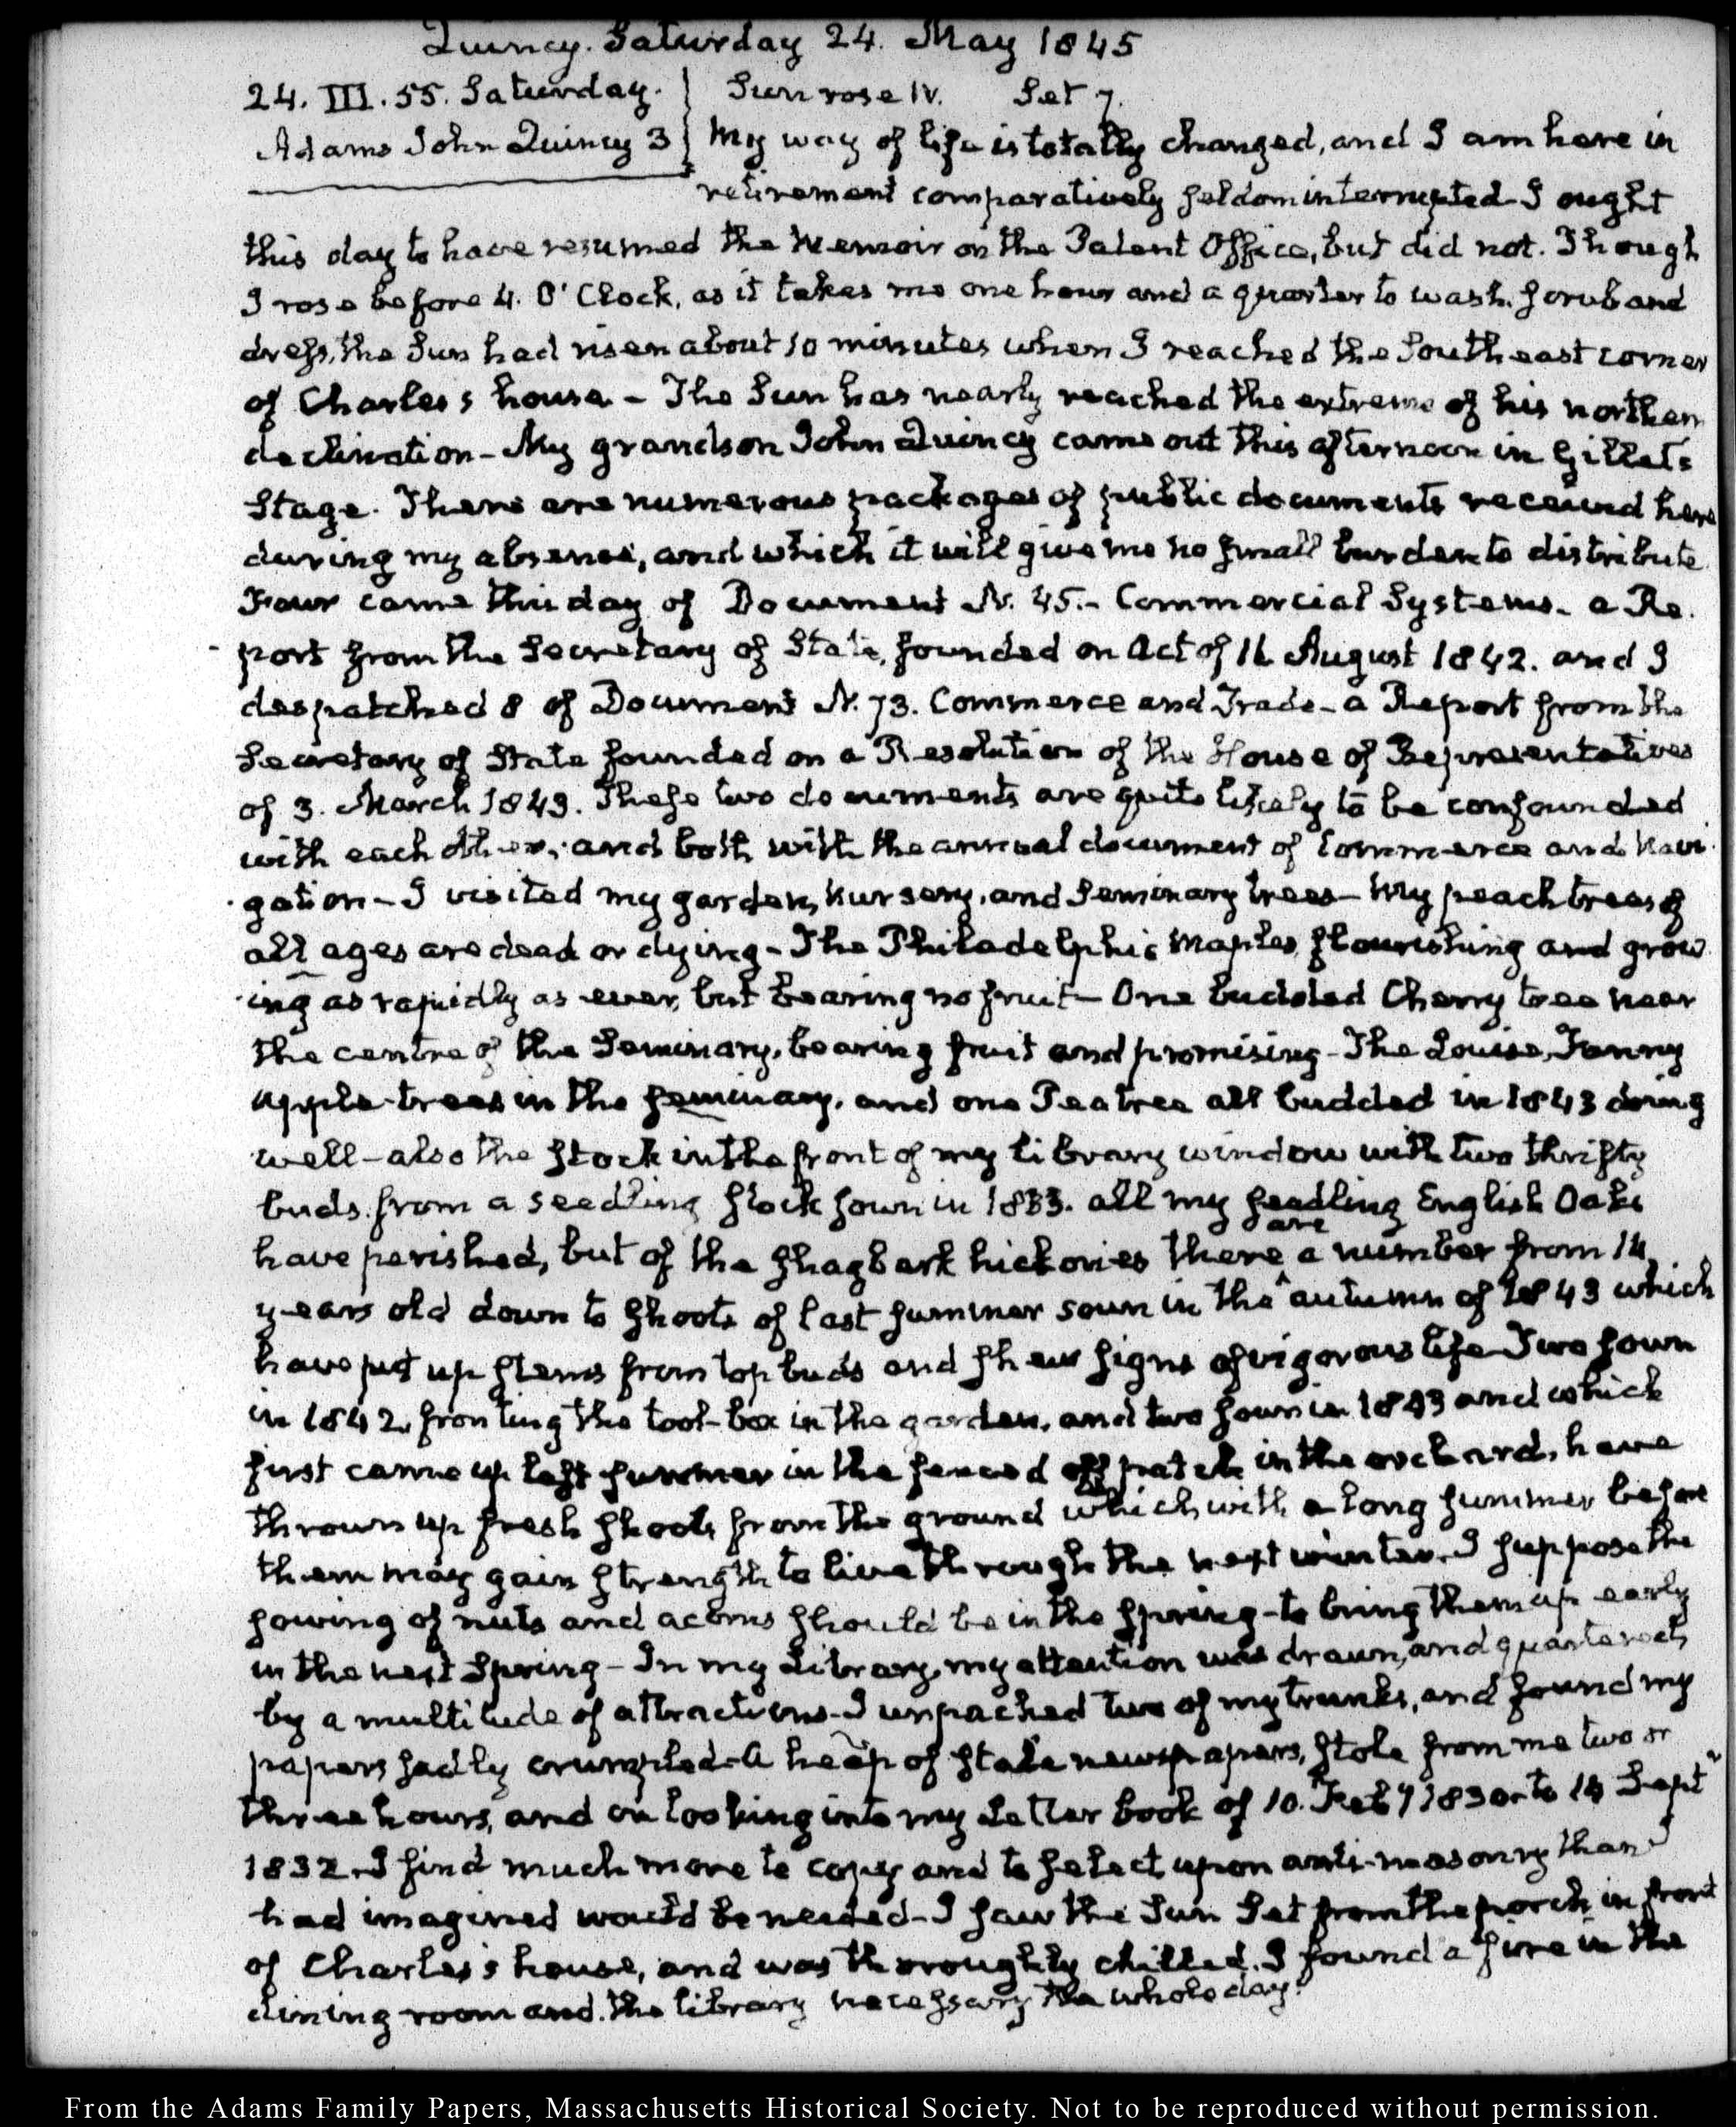 Quincy. Saturday 24. May 1845
24. III. 55. Saturday. Sun rose IV. Set 7.
Adams John Quincy 3 My way of life is totally changed, and I am here in
retirement comparatively seldom interrupted - I ought
this day to have resumed the Memoir on the Patent Office, but did not. Though
I rose before 4. O'Clock, as it takes me one hour and a quarter to wash. scrub and
dress, the Sun had risen about 10 minutes when I reached the Southeast corner
of Charles's house - The Sun has nearly reached the extreme of his northern
declination - My grandson John Quincy came out this afternoon in Gillet's
Stage. There are numerous packages of public documents received here
during my absence, and which it will give me no small burden to distribute
Four came this day of Document N. 45. - Commercial Systems - a Re-
port from the Secretary of State, founded on Act of 16 August 1842. and I
despatched 8 of Document N. 73. Commerce and Trade - a Report from the
Secretary of State founded on a Resolution of the House of Representatives
of 3. March 1843. These two documents are quite likely to be confounded
with each other, and both with the annual document of Commerce and Navi-
gation - I visited my garden, nursery, and Seminary trees - My peach trees of
all ages are dead or dying - The Philadelphia Maples flourishing and grow
ing as rapidly as ever, but bearing no fruit - One budded Cherry tree near
the centre of the Seminary, bearing fruit and promising - The Louisa, Fanny
apple-trees in the seminary, and one Pea tree all budded in 1843 doing
well - also the stock in the front of my library window with two thrifty
buds. from a seedling stock sown in 1833. all my seedling English Oaks
have perished, but of the shagbark hickories there are a number from 14
years old down to shoots of last summer sown in the autumn of 1843 which
have put up stems from top buds and shew signs of vigorous life Two sown
in 1842, fronting the tool-box in the garden, and two sown in 1843 and which
first came up last summer in the fenced off patch in the orchard, have
thrown up fresh shoots from the ground which with a long summer before
them may gain strength to live through the next winter. I suppose the
sowing of nuts and acorns should be in the spring - to bring them up early
in the next Spring - In my Library, my attention was drawn, and quartered,
by a multitude of attractions - I unpacked two of my trunks, and found my
papers sadly crumpled - A heap of stale newspapers, stole from me two or
three hours, and on looking into my Letter book of 10. Feby 1830 to 14 Septr
1832. I find much more to copy and to select upon anti-masonry than I
had imagined would be needed - I saw the Sun Set from the porch in front
of Charles's house, and was thoroughly chilled. I found a fire in the
dining room and the library necessary the whole day.
From the Adams Family Papers, Massachusetts Historical Society. Not to be reproduced without permission.